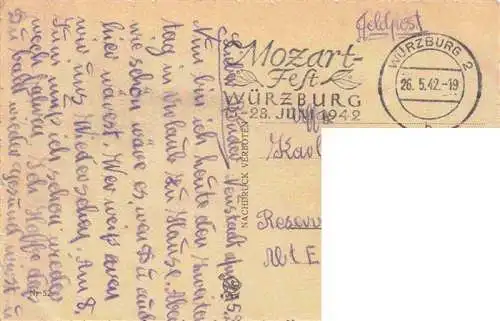 Feldpost
Mozart-
Fest
WÜRZBURG
28. JUNI 1942
WÜRZBURG 2
26.5.42.-19
b
Karl
Reserv
Abt E
NACHDRUCK VERBOTEN
Lieber Bruder! Neustadt
Nun bin ich heute den zweiten
Tag in Urlaub zu Hause. Aber
wie schön wäre es, wenn Du auch
hier wärest. Wer weiß wann
wir uns Wiedersehen. Am 8.
Juni muß ich schon wieder
weg fahren. Ich hoffe das
Du bald wieder gesund wirst u